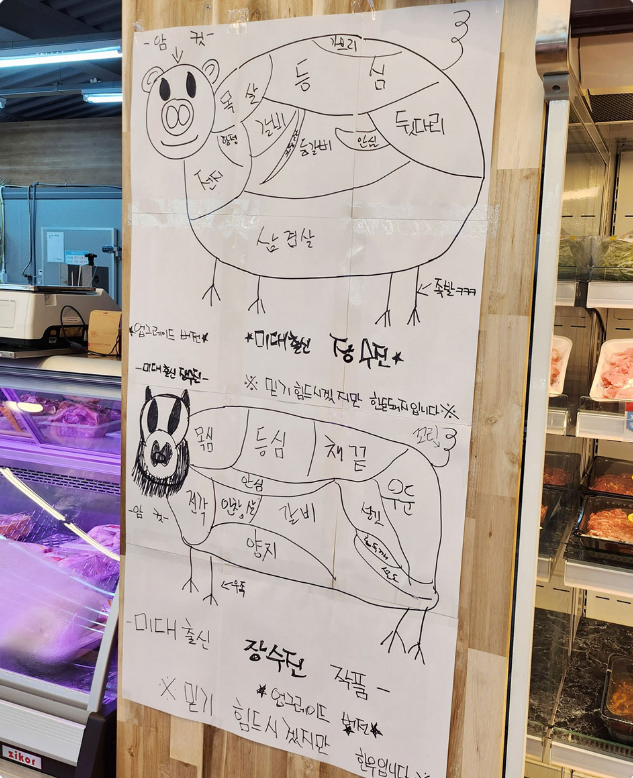 -암 컷-
가브리
3
목 살
등 심
갈비
항정
등갈비
안심
뒷다리
삼겹살
←족발ㅋㅋㅋ
★업그레이드 버전★
★미대출신 장수전★
-미대출신 장수전-
※ 믿기 힘드시겠지만 한돈돼지입니다※
목심
등심
채끝
꼬리
3
우둔
안심
전각
안창살
갈비
설깃
양지
-암 컷-
←우족
-미대출신
장수전 작품-
★업그레이드 버전★
※ 믿기 힘드시겠지만
한우입니다※
zikor